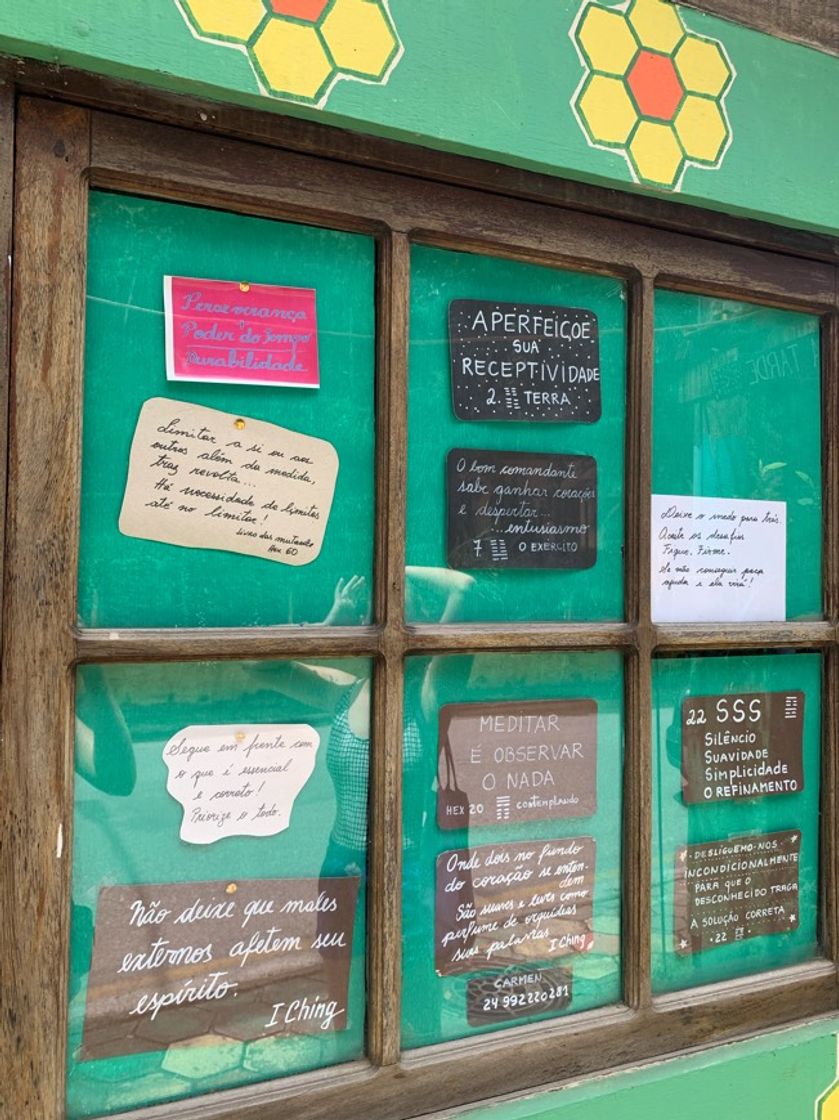 Perseverança
Poder do Tempo
Durabilidade
Limitar a si ou aos
outros além da medida,
traz revolta...
Há necessidade de limites
até no limitar!
Livro das mutações
Hex 60
APERFEIÇOE
SUA
RECEPTIVIDADE
2. ䷁ TERRA
O bom comandante
sabe ganhar corações
e despertar...
...entusiasmo
7. ䷆ O EXÉRCITO
TARDE
Deixe o medo para trás.
Aceite os desafios
Fique. Firme.
Se não conseguir peça
ajuda e ela virá!
Segue em frente com
o que é essencial
e correto!
Priorize o todo.
Não deixe que males
externos afetem seu
espírito.
I Ching
MEDITAR
É OBSERVAR
O NADA
HEX 20 ䷓ contemplando
Onde dois no fundo
do coração se enten-
dem
São suaves e leves como
perfume de orquídeas
suas palavras
I Ching
CARMEN
24 992220281
22 SSS
SILÊNCIO
SUAVIDADE
SIMPLICIDADE
O REFINAMENTO
DESLIGUEMO-NOS
INCONDICIONALMENTE
PARA QUE O
DESCONHECIDO TRAGA
A SOLUÇÃO CORRETA
22